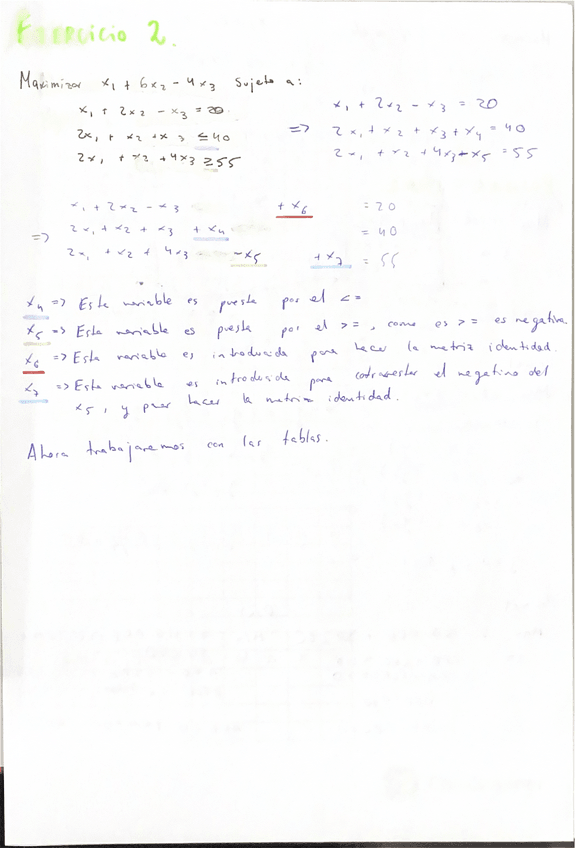 Ejercicio 2.
Maximizar x₁ + 6x₂ - 4x₃ sujeto a:
x₁ + 2x₂ - x₃ = 20
2x₁ + x₂ + x₃ ≤ 40
2x₁ + x₂ + 4x₃ ≥ 55
=> x₁ + 2x₂ - x₃ = 20
2x₁ + x₂ + x₃ + x₄ = 40
2x₁ + x₂ + 4x₃ - x₅ = 55
x₁ + 2x₂ - x₃ + x₆ = 20
=> 2x₁ + x₂ + x₃ + x₄ = 40
2x₁ + x₂ + 4x₃ - x₅ + x₇ = 55
x₄ => Esta variable es puesta por el <=
x₅ => Esta variable es puesta por el >=, como es >= es negativa.
x₆ => Esta variable es introducida para hacer la matriz identidad.
x₇ => Esta variable es introducida para el negativo del
x₅, y hacer la matriz identidad.
Ahora trabajaremos con las tablas.